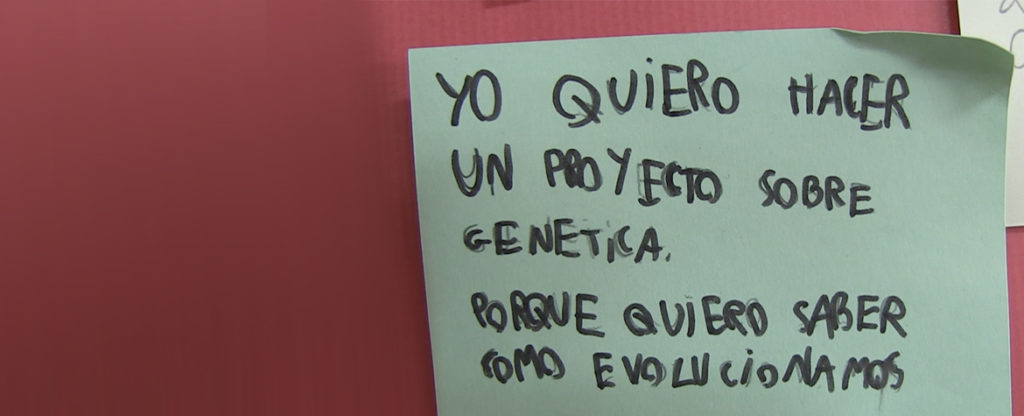 YO QUiERO HACER
UN PROYECTO SOBRE
GENETiCA.
PORQUE QUiERO SABER
COMO EVOLUCiONAMOS